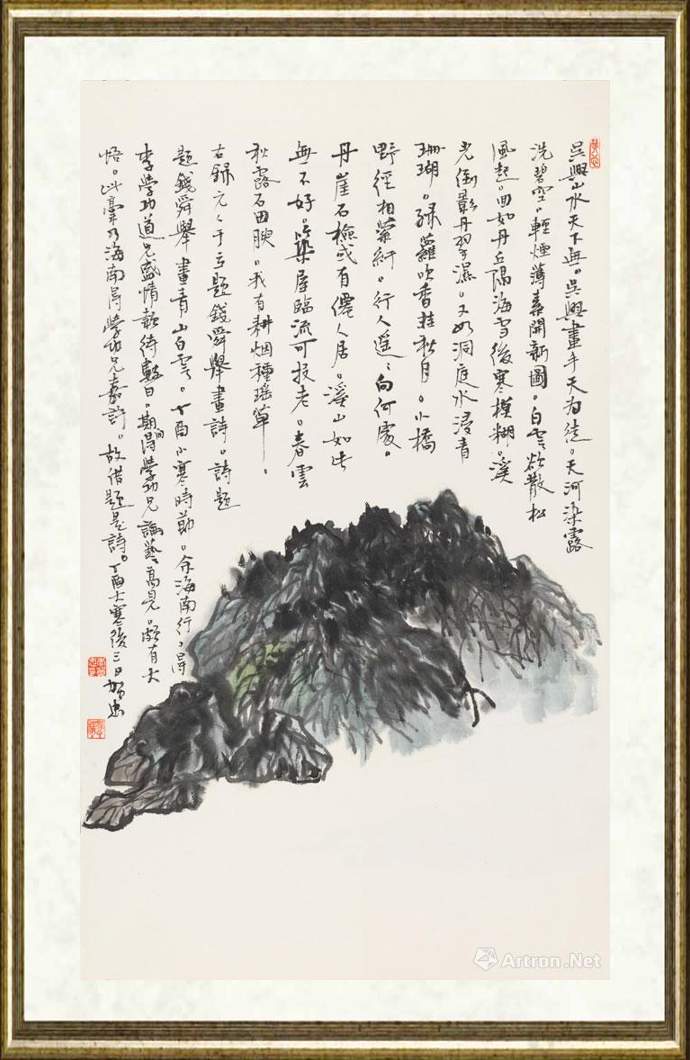 吳興山水天下無。吳興畫手天為徒。天河染露
洗碧空。輕煙薄素開新圖。白雲欲散松
風起。回如丹丘隔海雪後寒模糊。溪
光倒影丹翠濕。又如洞庭水浸青
珊瑚。綠蘿吹香挂秋月。小橋
野徑相縈紆。行人遥遥向何處。
丹崖石檢或有僊人居。溪山如此
無不好。築屋臨流可投老。春雲
秋露石田腴。我有耕烟種瑶草。
右錄元人于立題錢舜舉畫詩。詩題
題錢舜舉畫青山白雲。丁酉小寒時節。余海南行。得
李學功道兄盛情款待數日。期間得學功兄論藝高見。頗有大
悟。此稾乃海南得學功兄嘉許。故借題是詩。丁酉大寒後三日
Artron.Net